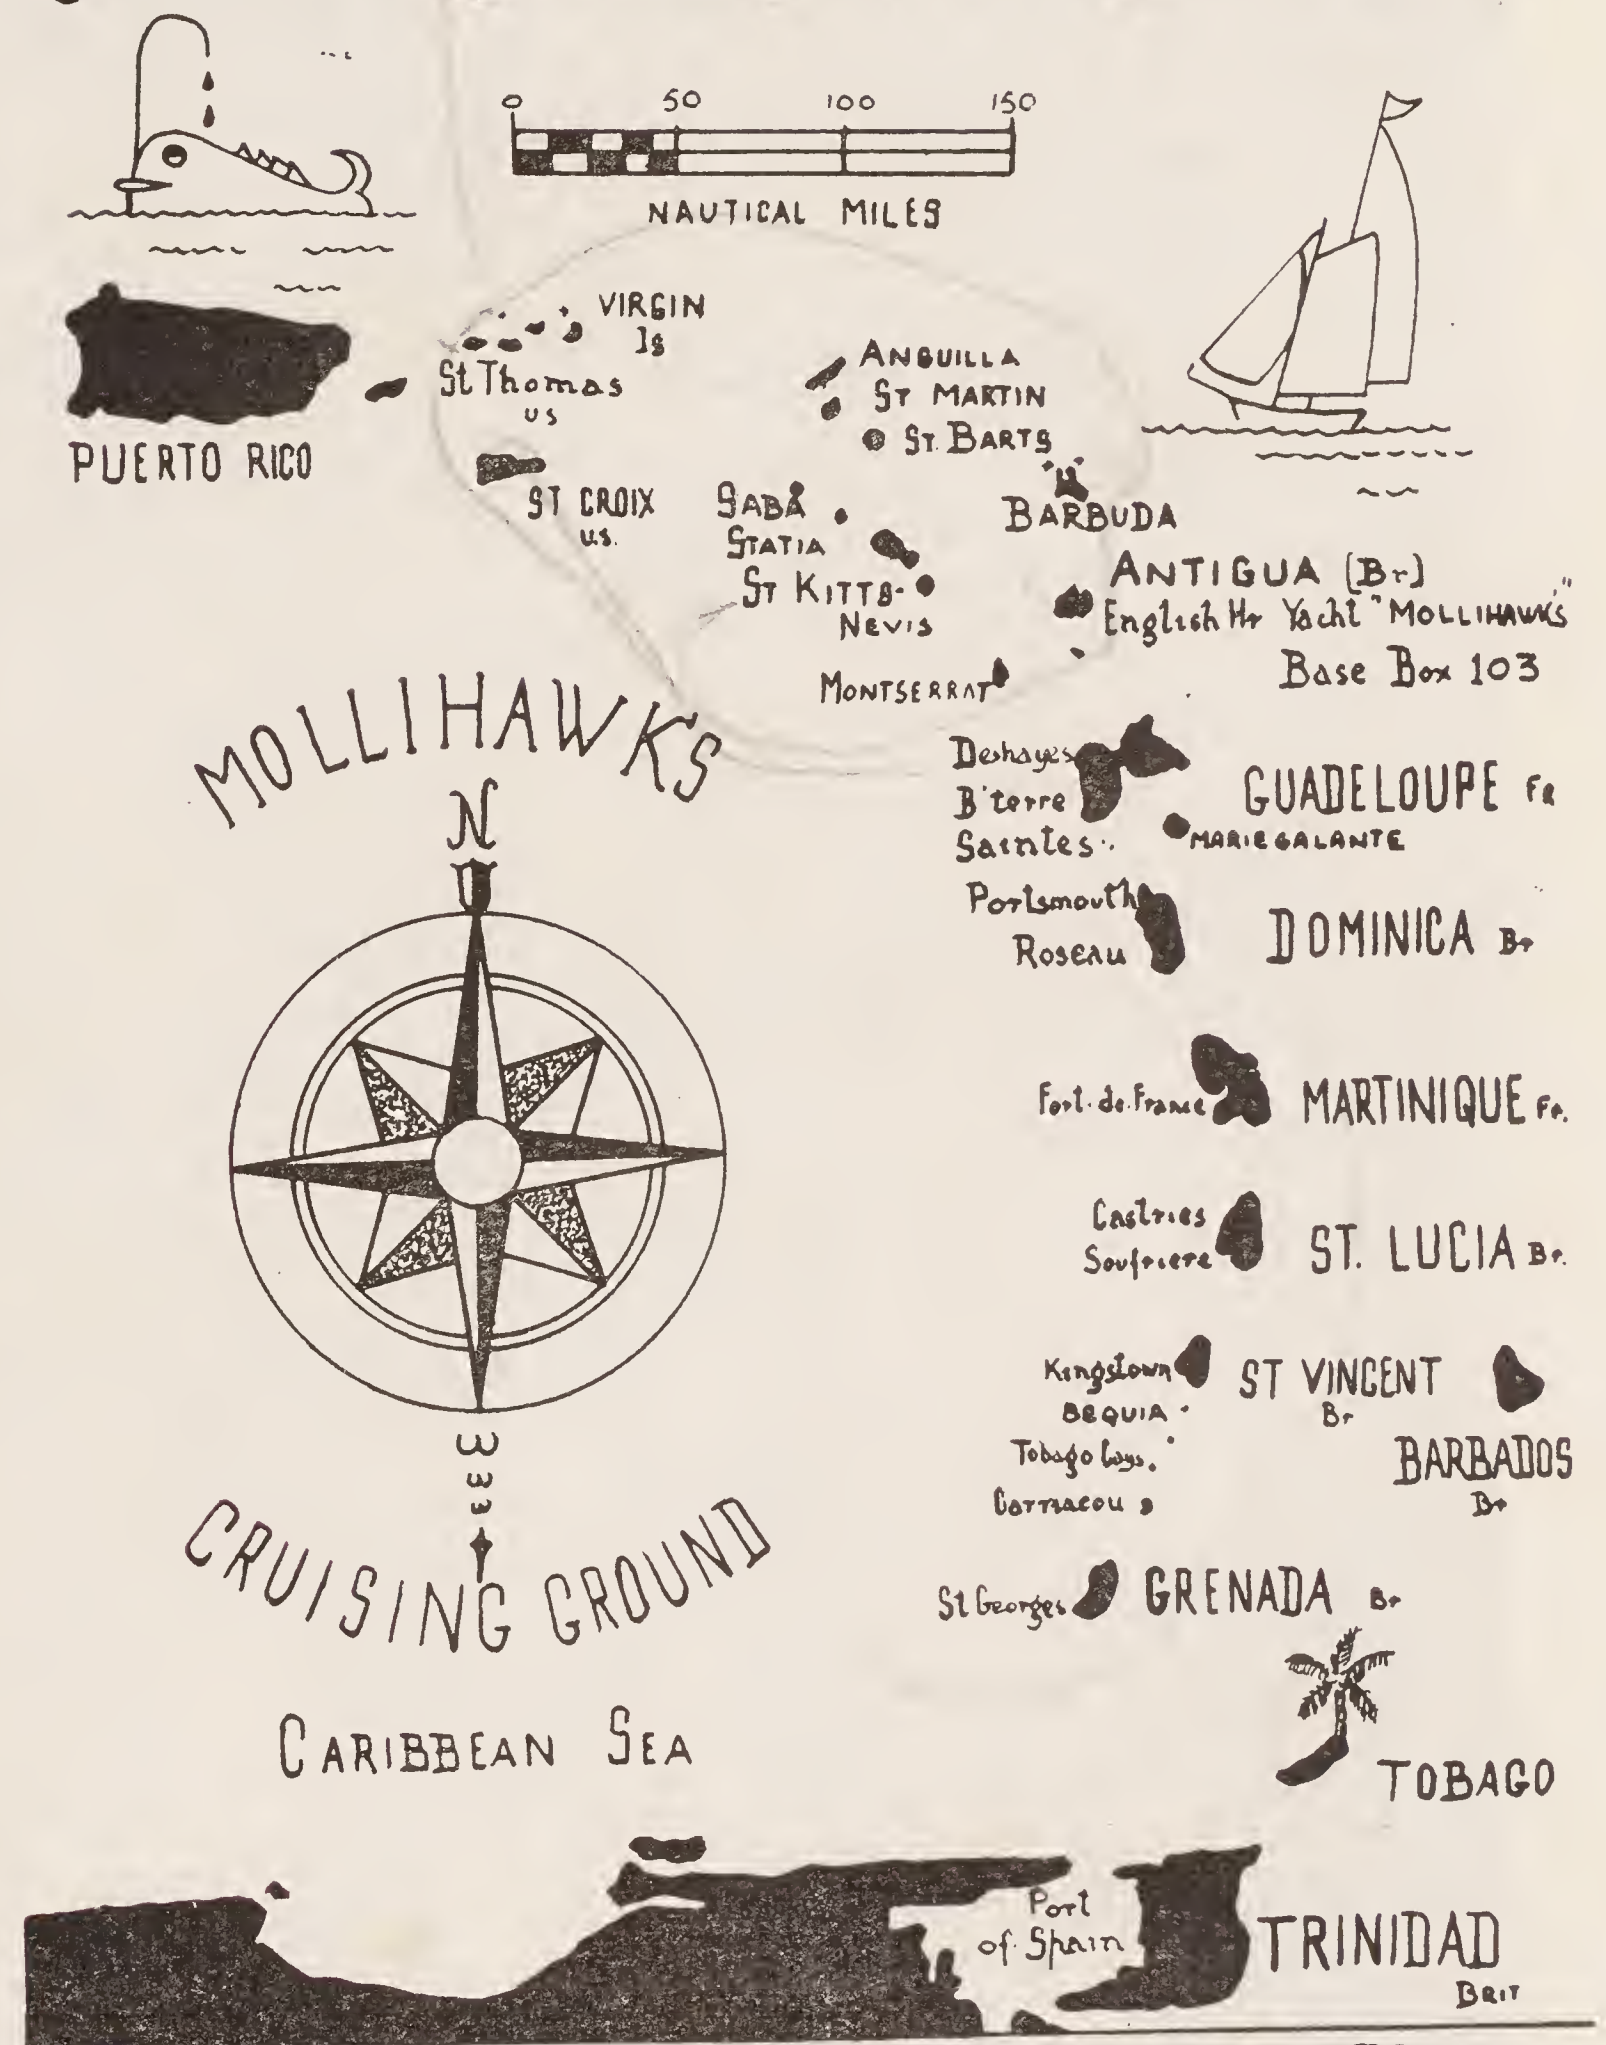 0 50 100 150
NAUTICAL MILES
VIRGIN
Is
St Thomas
US
PUERTO RICO
ANGUILLA
ST MARTIN
ST. BARTS
ST CROIX
U.S.
SABA
STATIA
ST KITTS-
NEVIS
BARBUDA
ANTIGUA (Br)
English Hr Yacht "MOLLIHAWK'S"
Base Box 103
MONTSERRAT
MOLLIHAWK'S
N
Deshayes
B'terre
Saintes
GUADELOUPE FR
MARIE GALANTE
Portsmouth
Roseau
DOMINICA Br
Fort.de.France
MARTINIQUE Fr.
Castries
Soufriere
ST. LUCIA Br.
Kingstown
ST VINCENT
Br
BEQUIA
Tobago Cays.
Carriacou
BARBADOS
Br
CRUISING GROUND
St Georges
GRENADA Br
CARIBBEAN SEA
TOBAGO
Port
of Spain
TRINIDAD
BRIT